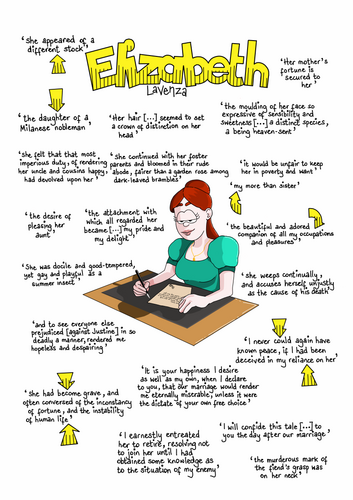 Elizabeth
Lavenza
'she appeared of a
different stock'
'Her mother's
fortune is
secured to
her'
'the daughter of a
Milanese nobleman'
'Her hair [...] seemed to set
a crown of distinction on her
head'
'the moulding of her face so
expressive of sensibility and
sweetness [...] a distinct species,
a being heaven-sent'
'she felt that that most
imperious duty, of rendering
her uncle and cousins happy,
had devolved upon her'
'she continued with her foster
parents and bloomed in their rude
abode, fairer than a garden rose among
dark-leaved brambles'
'it would be unfair to keep
her in poverty and want'
'my more than sister'
'the desire of
pleasing her
aunt'
'the attachment with
which all regarded her
became [...] my pride and
my delight'
'the beautiful and adored
companion of all my occupations
and pleasures'
'She was docile and good-tempered,
yet gay and playful as a
summer insect'
'she weeps continually,
and accuses herself unjustly
as the cause of his death'
'and to see everyone else
prejudiced [against Justine] in so
deadly a manner, rendered me
hopeless and despairing'
'I never could again have
known peace, if I had been
deceived in my reliance on her'
'She had become grave, and
often conversed of the inconstancy
of fortune, and the instability
of human life'
'It is your happiness I desire
as well as my own, when I declare
to you, that our marriage would render
me eternally miserable, unless it were
the dictate of your own free choice'
'I earnestly entreated
her to retire, resolving not
to join her until I had
obtained some knowledge as
to the situation of my enemy'
'I will confide this tale [...] to
you the day after our marriage'
'the murderous mark of
the fiend's grasp was
on her neck'